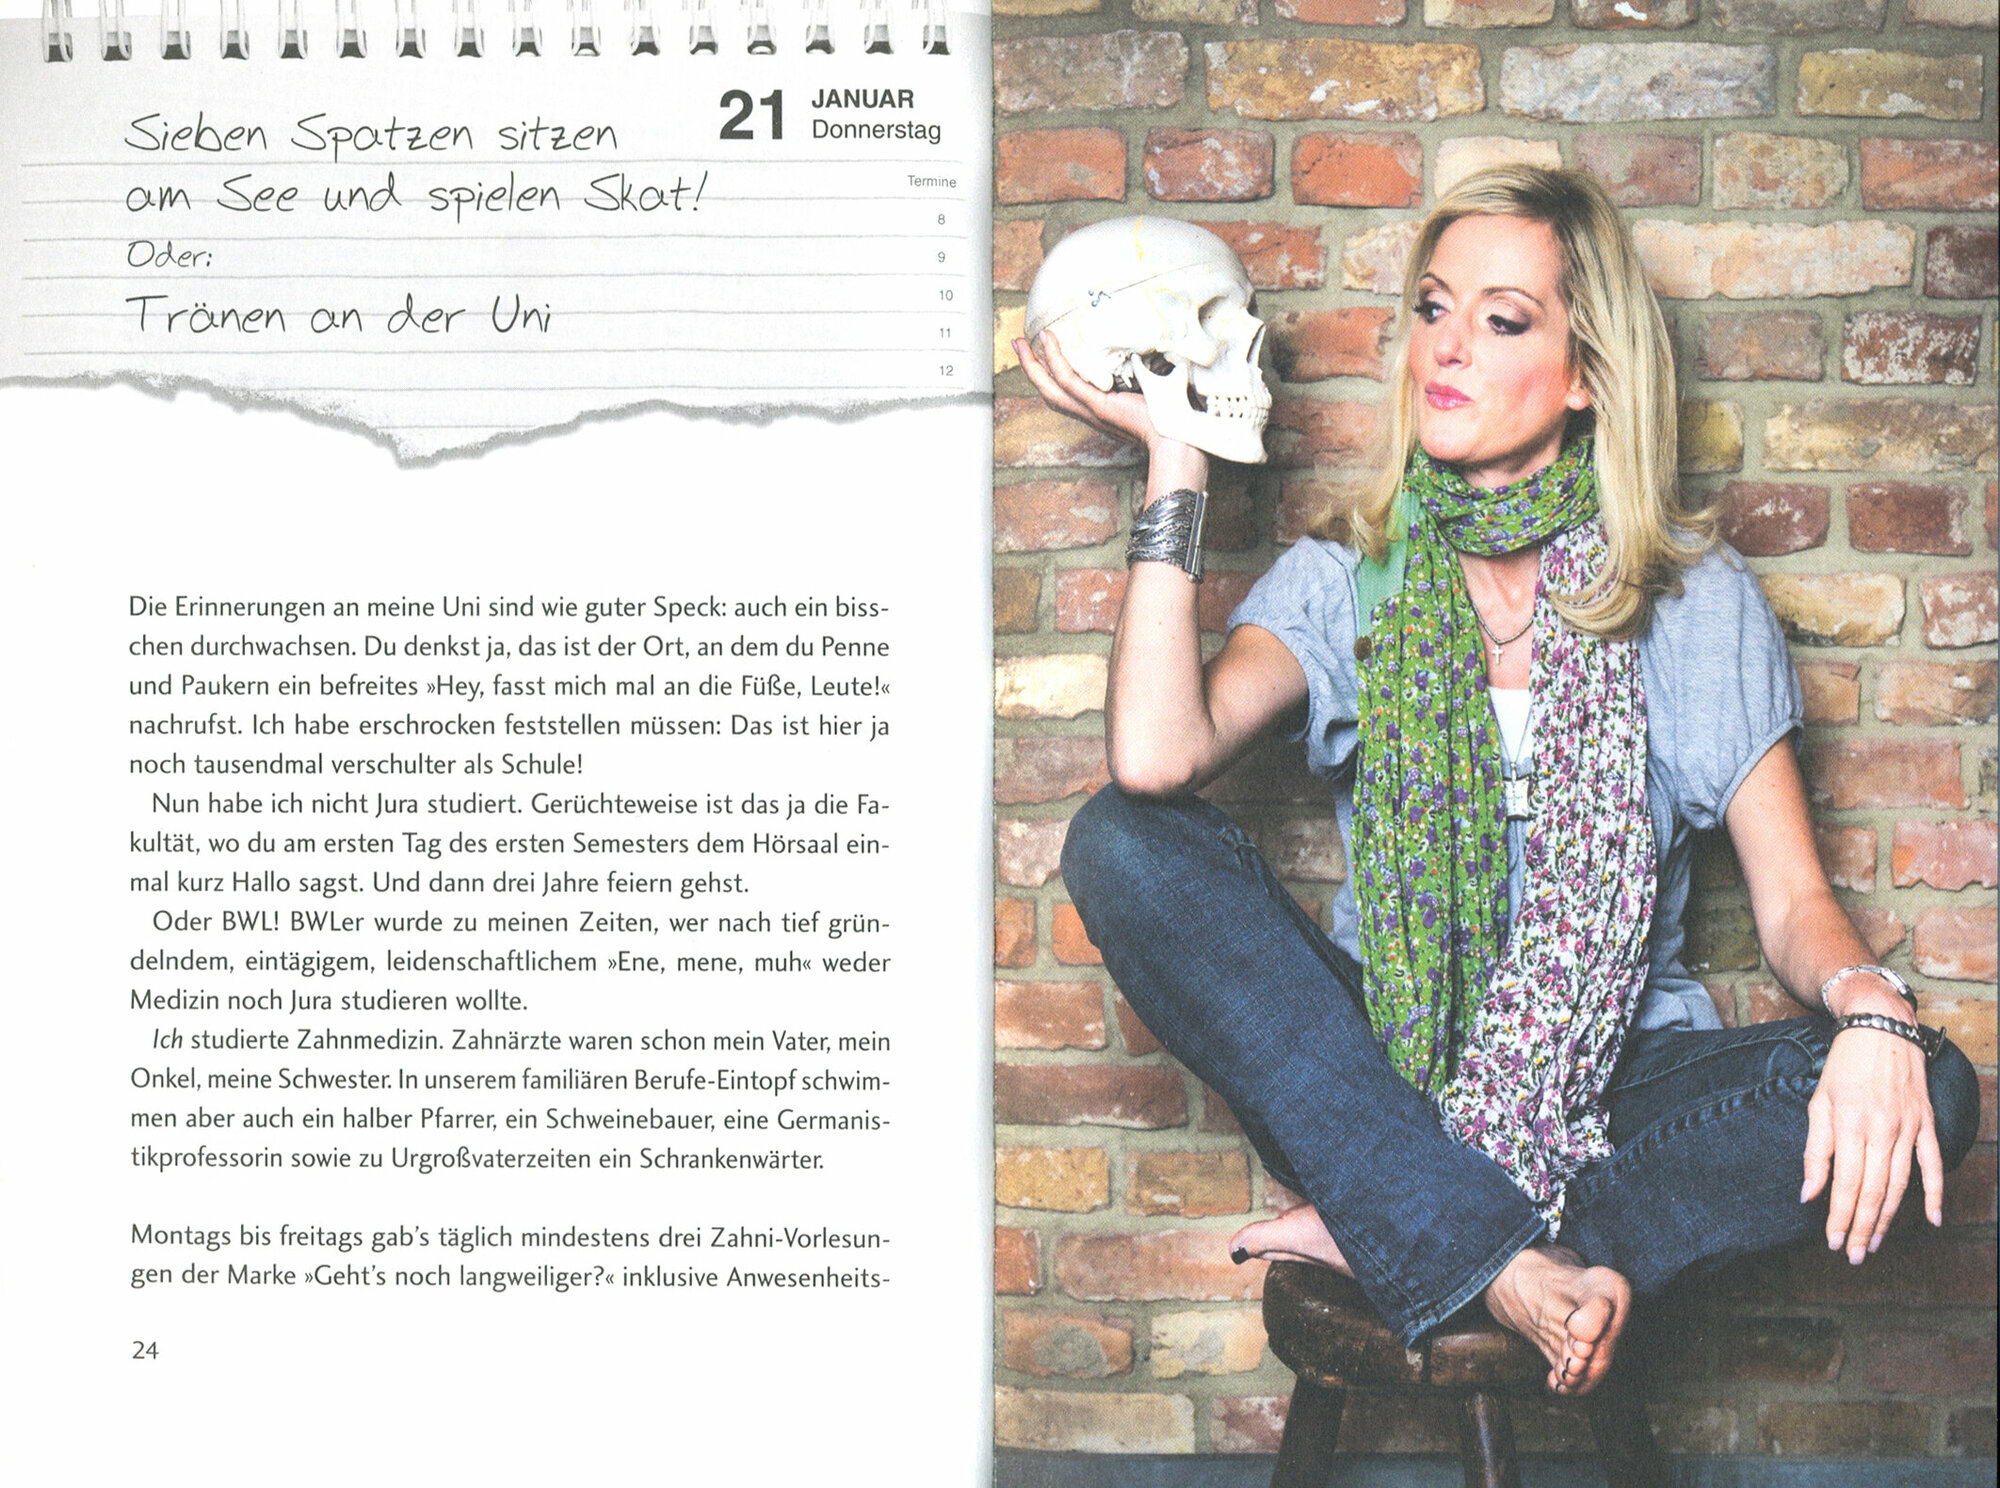 Sieben Spatzen sitzen
am See und spielen Skat!
Oder:
Tränen an der Uni
21 JANUAR
Donnerstag
Termine
8
9
10
11
12
Die Erinnerungen an meine Uni sind wie guter Speck: auch ein biss-
chen durchwachsen. Du denkst ja, das ist der Ort, an dem du Penne
und Paukern ein befreites »Hey, fasst mich mal an die Füße, Leute!«
nachrufst. Ich habe erschrocken feststellen müssen: Das ist hier ja
noch tausendmal verschulter als Schule!
Nun habe ich nicht Jura studiert. Gerüchteweise ist das ja die Fa-
kultät, wo du am ersten Tag des ersten Semesters dem Hörsaal ein-
mal kurz Hallo sagst. Und dann drei Jahre feiern gehst.
Oder BWL! BWLer wurde zu meinen Zeiten, wer nach tief grün-
delndem, eintägigem, leidenschaftlichem »Ene, mene, muh« weder
Medizin noch Jura studieren wollte.
Ich studierte Zahnmedizin. Zahnärzte waren schon mein Vater, mein
Onkel, meine Schwester. In unserem familiären Berufe-Eintopf schwim-
men aber auch ein halber Pfarrer, ein Schweinebauer, eine Germanis-
tikprofessorin sowie zu Urgroßvaterzeiten ein Schrankenwärter.
Montags bis freitags gab's täglich mindestens drei Zahni-Vorlesun-
gen der Marke »Geht's noch langweiliger?« inklusive Anwesenheits-
24